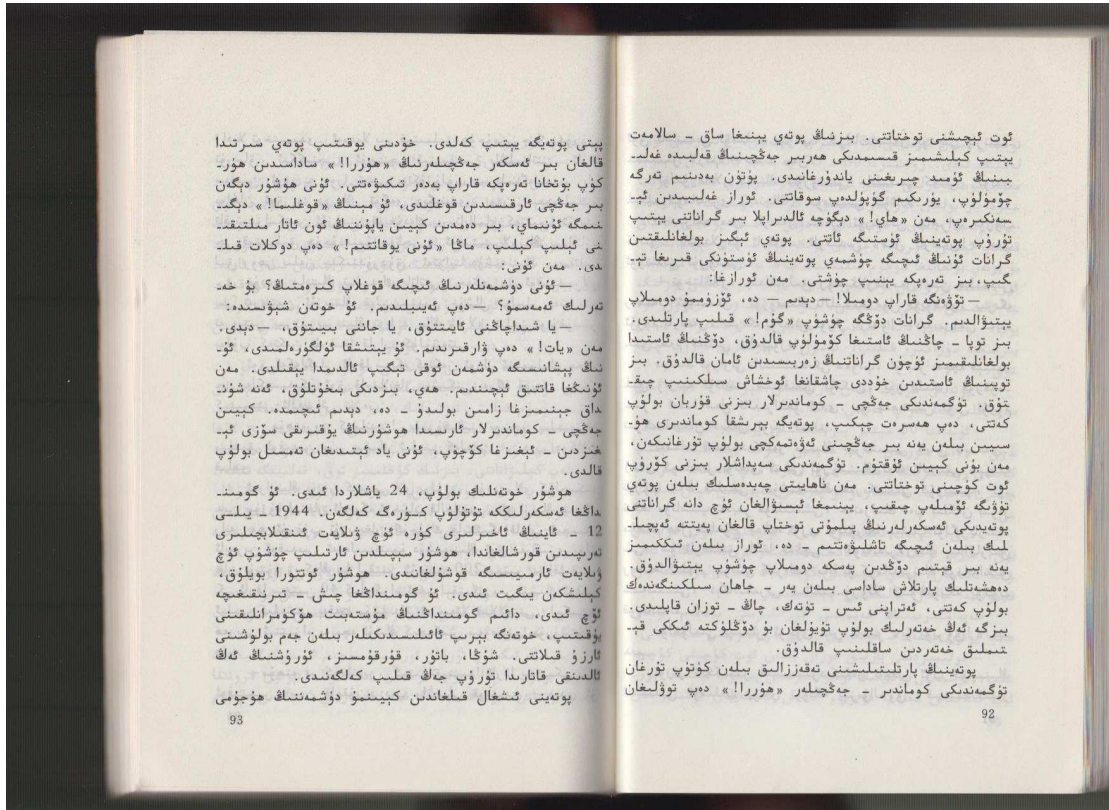 ئوت ئېچىشنى توختاتتى. بىزنىڭ پوتەي يېنىغا ساق - سالامەت
يېتىپ كېلىشىمىز قىسىمدىكى ھەربىر جەڭچىنىڭ قەلبىدە غەلى-
بىنىڭ ئۈمىد چىرىغىنى ياندۇرغانىدى. پۈتۈن بەدىنىم تەرگە
چۆمۈلۈپ، يۈرىكىم گۈپۈلدەپ سوقاتتى. ئوراز غەلىبىدىن ئې-
سەنكىرەپ، مەن «ھاي!» دېگۈچە ئالدىراپلا بىر گراناتنى يېتىپ
تۇرۇپ پوتەينىڭ ئۈستىگە ئاتتى. پوتەي ئېگىز بولغانلىقتىن
گرانات ئۇنىڭ ئىچىگە چۈشمەي پوتەينىڭ ئۈستۈنكى قىرىغا تې-
گىپ، بىز تەرەپكە يېنىپ چۈشتى. مەن ئورازغا:
— تۆۋەنگە قاراپ دومىلا! — دېدىم — دە، ئۆزۈممۇ دومىلاپ
يېتىۋالدىم. گرانات دۆڭگە چۈشۈپ «گۈم!» قىلىپ پارتلىدى.
بىز توپا - چاڭنىڭ ئاستىغا كۆمۈلۈپ قالدۇق، دۆڭنىڭ ئاستىدا
بولغانلىقىمىز ئۈچۈن گراناتنىڭ زەربىسىدىن ئامان قالدۇق. بىز
توپىنىڭ ئاستىدىن خۇددى چاشقانغا ئوخشاش سىلكىنىپ چىق-
تۇق. تۈگمەندىكى جەڭچى - كوماندىرلار بىزنى قۇربان بولۇپ
كەتتى، دەپ ھەسرەت چېكىپ، پوتەيگە بېرىشقا كوماندىرى ھۆ-
سىيىن بىلەن يەنە بىر جەڭچىنى ئەۋەتمەكچى بولۇپ تۇرغانىكەن،
مەن بۇنى كېيىن ئۇقتۇم. تۈگمەندىكى سەپداشلار بىزنى كۆرۈپ
ئوت كۈچىنى توختاتتى. مەن ناھايىتى چەبدەسلىك بىلەن پوتەي
تۈۋىگە ئۆمىلەپ چىقىپ، يېنىمغا ئېسىۋالغان ئۈچ دانە گراناتنى
پوتەيدىكى ئەسكەرلەرنىڭ پىلىمۇتى توختاپ قالغان پەيتتە ئەپچىل-
لىك بىلەن ئىچىگە تاشلىۋەتتىم - دە، ئوراز بىلەن ئىككىمىز
يەنە بىر قېتىم دۆڭدىن پەسكە دومىلاپ چۈشۈپ يېتىۋالدۇق.
دەھشەتلىك پارتلاش ساداسى بىلەن يەر - جاھان سىلكىنگەندەك
بولۇپ كەتتى، ئەتراپنى ئىس - تۈتەك، چاڭ - توزان قاپلىدى.
بىزگە ئەڭ خەتەرلىك بولۇپ تۇيۇلغان بۇ دۆڭلۈكتە ئىككى قې-
تىملىق خەتەردىن ساقلىنىپ قالدۇق.
پوتەينىڭ پارتلىتىلىشىنى تەقەززالىق بىلەن كۈتۈپ تۇرغان
تۈگمەندىكى كوماندىر - جەڭچىلەر «ھۇررا!» دەپ توۋلىغان
92
پېتى پوتەيگە يېتىپ كەلدى. خۇدىنى يوقىتىپ پوتەي سىرتىدا
قالغان بىر ئەسكەر جەڭچىلەرنىڭ «ھۇررا!» ساداسىدىن ھۈر-
كۈپ بۇتخانا تەرەپكە قاراپ بەدەر تىكىۋەتتى. ئۇنى ھۇشۇر دېگەن
بىر جەڭچى ئارقىسىدىن قوغلىدى، ئۇ مېنىڭ «قوغلىما!» دېگى-
نىمگە ئۇنىماي، بىر دەمدىن كېيىن ياپۇننىڭ ئون ئاتار مىلتىقى-
نى ئېلىپ كېلىپ، ماڭا «ئۇنى يوقاتتىم!» دەپ دوكلات قىل-
دى. مەن ئۇنى:
— ئۇنى دۈشمەنلەرنىڭ ئىچىگە قوغلاپ كىرەمتىڭ؟ بۇ خە-
تەرلىك ئەمەسمۇ؟ — دەپ ئەيىبلىدىم. ئۇ خوتەن شېۋىسىدە:
— يا شىداچاڭنى ئايىتتۇق، يا جاننى بىيىتۇق، — دېدى.
مەن «يات!» دەپ ۋارقىرىدىم. ئۇ يېتىشقا ئۈلگۈرەلمىدى، ئۇ-
نىڭ پېشانىسىگە دۈشمەن ئوقى تېگىپ ئالدىمدا يىقىلدى. مەن
ئۇنىڭغا قاتتىق ئېچىندىم. ھەي، بىزدىكى بىخۇتلۇق، ئەنە شۇن-
داق جېنىمىزغا زامىن بولىدۇ - دە، دېدىم ئىچىمدە. كېيىن
جەڭچى - كوماندىرلار ئارىسىدا ھوشۇرنىڭ يۇقىرىقى سۆزى ئې-
غىزدىن - ئېغىزغا كۆچۈپ، ئۇنى ياد ئېتىدىغان تەمسىل بولۇپ
قالدى.
ھوشۇر خوتەنلىك بولۇپ، 24 ياشلاردا ئىدى. ئۇ گومىن-
داڭغا ئەسكەرلىككە تۇتۇلۇپ كۈرەگە كەلگەن. 1944 - يىلى
12 - ئاينىڭ ئاخىرلىرى كۈرە ئۈچ ۋىلايەت ئىنقىلابچىلىرى
تەرىپىدىن قورشالغاندا، ھوشۇر سېپىلدىن ئارتىلىپ چۈشۈپ ئۈچ
ۋىلايەت ئارمىيىسىگە قوشۇلغانىدى. ھوشۇر ئوتتۇرا بويلۇق،
كېلىشكەن يىگىت ئىدى. ئۇ گومىنداڭغا چىش - تىرنىقىغىچە
ئۆچ ئىدى، دائىم گومىنداڭنىڭ مۇستەبىت ھۆكۈمرانلىقىنى
يوقىتىپ، خوتەنگە بېرىپ ئائىلىسىدىكىلەر بىلەن جەم بولۇشنى
ئارزۇ قىلاتتى. شۇڭا، باتۇر، قورقۇمسىز، ئۇرۇشنىڭ ئەڭ
ئالدىنقى قاتارىدا تۇرۇپ جەڭ قىلىپ كەلگەنىدى.
پوتەينى ئىشغال قىلغاندىن كېيىنمۇ دۈشمەننىڭ ھۇجۇمى
93